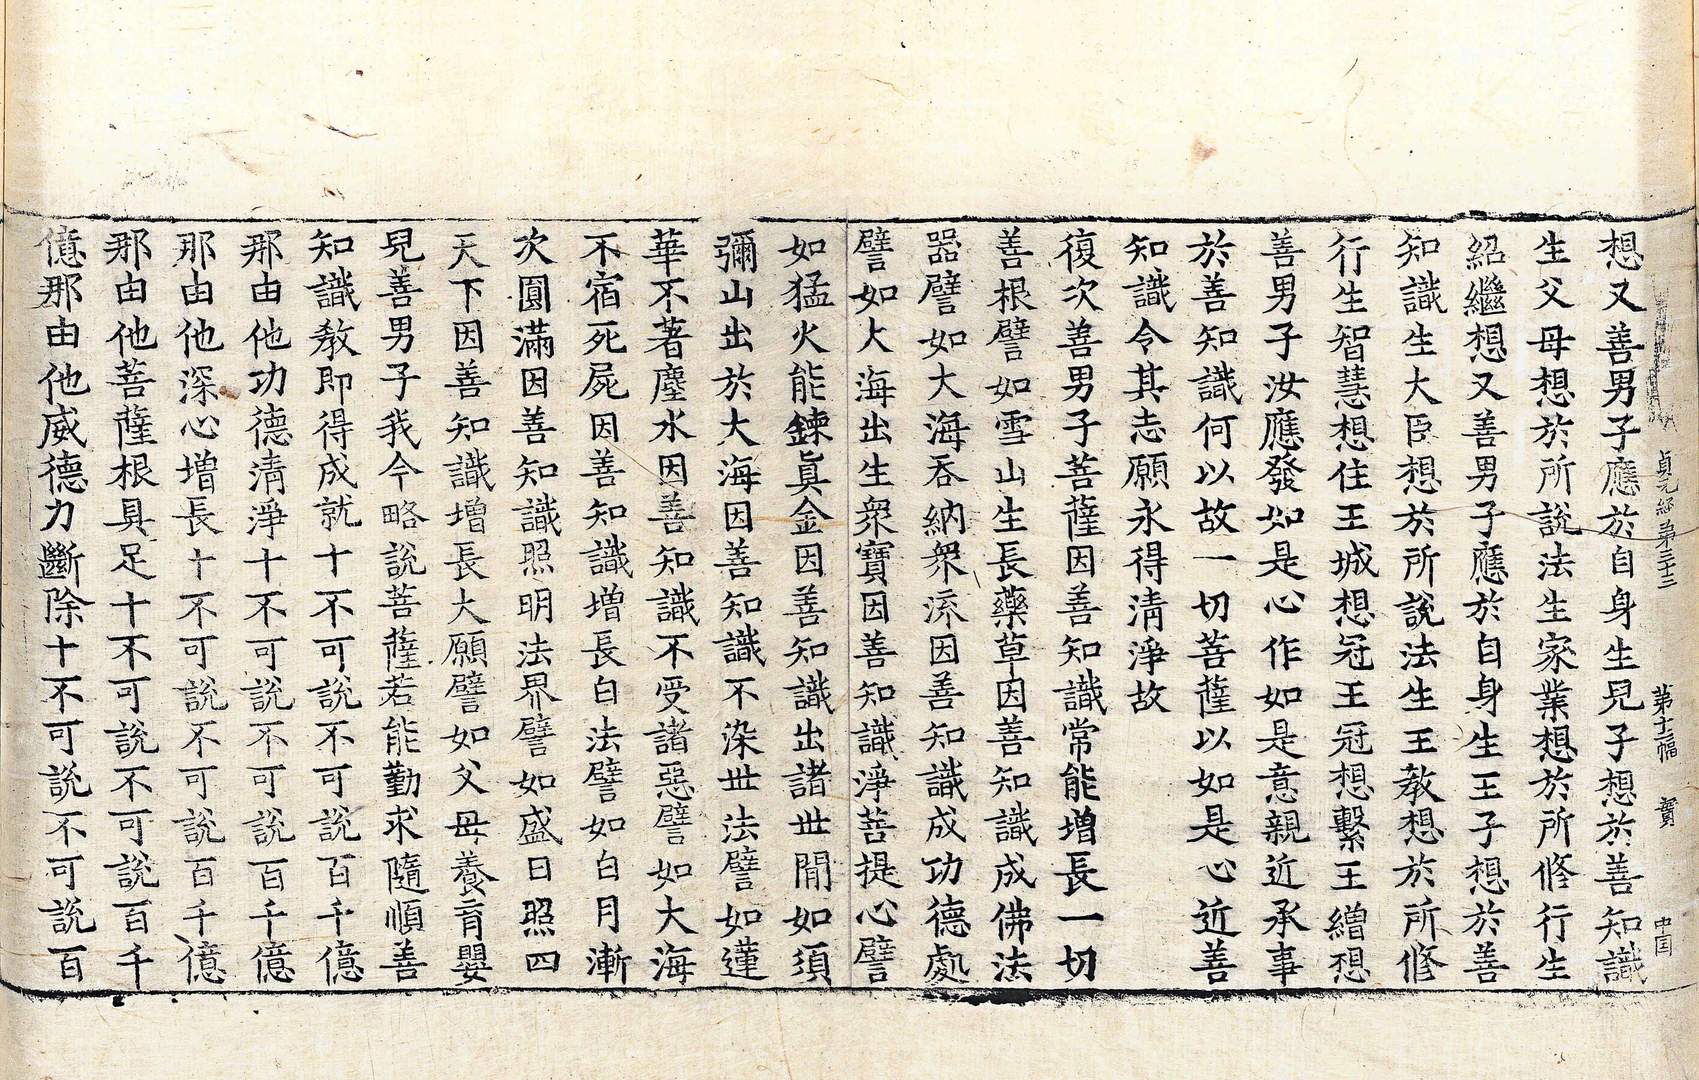 貞元經第三十三 第十二幅 寶
想又善男子應於自身生兒子想於善知識
生父母想於所說法生家業想於所修行生
紹繼想又善男子應於自身生王子想於善
知識生大臣想於所說法生王教想於所修
行生智慧想住王城想冠王冠想繫王繒想
善男子汝應發如是心作如是意親近承事
於善知識何以故一切菩薩以如是心近善
知識令其志願永得清淨故
復次善男子菩薩因善知識常能增長一切
善根譬如雪山生長藥草因善知識成佛法
器譬如大海吞納衆流因善知識成功德處
譬如大海出生衆寶因善知識淨菩提心譬
如猛火能鍊眞金因善知識出諸世間如須
彌山出於大海因善知識不染世法譬如蓮
華不著塵水因善知識不受諸惡譬如大海
不宿死屍因善知識增長白法譬如白月漸
次圓滿因善知識照明法界譬如盛日照四
天下因善知識增長大願譬如父母養育嬰
兒善男子我今略說菩薩若能勤求隨順善
知識教即得成就十不可說不可說百千億
那由他功德清淨十不可說不可說百千億
那由他深心增長十不可說不可說百千億
那由他菩薩根具足十不可說不可說百千
億那由他威德力斷除十不可說不可說百